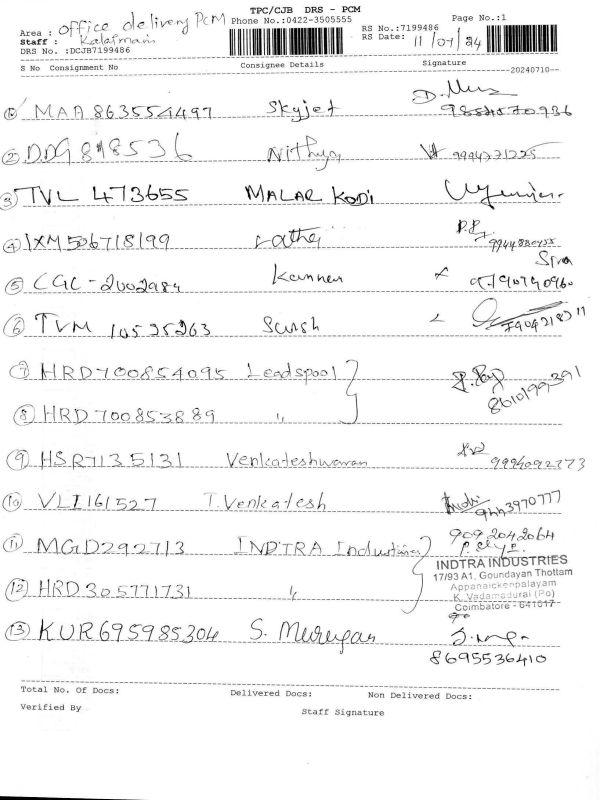 TPC/CJB DRS - PCM
Area : office delivery PCM Phone No.:0422-3505555 Page No.:1
Staff : Kalaimani RS No.:7199486
DRS No. :DCJB7199486 RS Date: 11/07/24
S No Consignment No Consignee Details Signature
--20240710--
1 MAA 863554497 Skyjet
2 DDG 818536 Nithya 9994771225
3 TVL 473655 MALAR KODI
4 IXM 506718199
5 CGC - 2002984 Kannan 9790790960
6 TVM 10525263 Suresh
7 HRD 700854095 Leadspool
8610199391
8 HRD 700853889 "
9 HSR7135131 Venkateshwaran
9994092773
10 VLI161527 T. Venkatesh
9443970777
11 MGD292713 INDTRA Industries 909 204 2064
INDTRA INDUSTRIES
17/93 A1, Goundayan Thottam
Appanaickenpalayam
12 HRD 305771731 " K. Vadamadurai (Po)
Coimbatore - 641017
13 KUR695985304 S. Murugan
8695536410
Total No. Of Docs: Delivered Docs: Non Delivered Docs:
Verified By Staff Signature